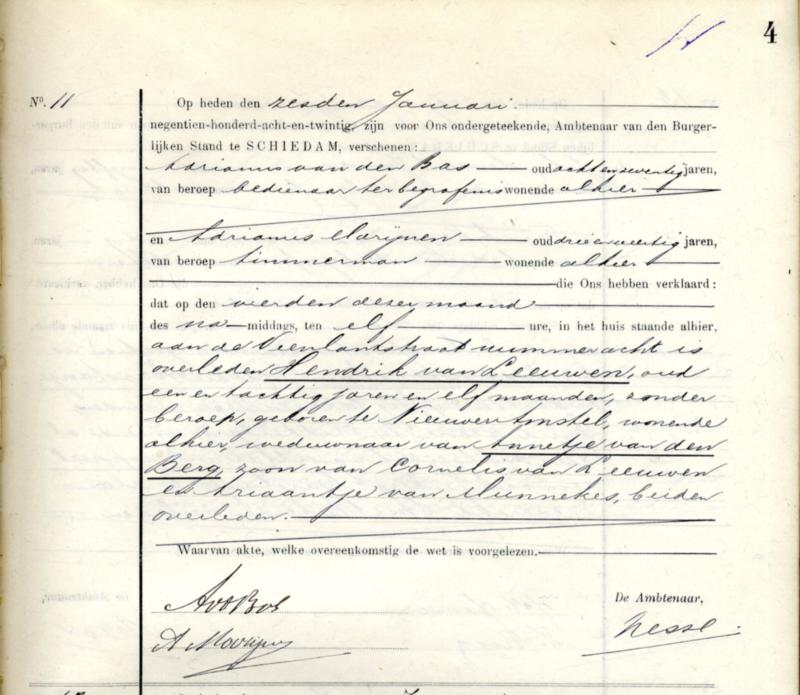 4
11
Nº. 11 Op heden den zesden Januari
negentien-honderd-acht-en-twintig, zijn voor Ons ondergeteekende, Ambtenaar van den Burger-
lijken Stand te SCHIEDAM, verschenen:
Adrianus van den Bos oud achtenzeventig jaren,
van beroep bedienaar ter begrafenis wonende alhier
en Adrianus Marijnen oud drieenveertig jaren,
van beroep timmerman wonende alhier
die Ons hebben verklaard:
dat op den vierden dezer maand
des na-middags, ten elf ure, in het huis staande alhier,
aan de Veenlantstraat nummer acht is
overleden Hendrik van Leeuwen, oud
een en tachtig jaren en elf maanden, zonder
beroep, geboren te Nieuwer Amstel, wonende
alhier, weduwnaar van Annetje van den
Berg, zoon van Cornelis van Leeuwen
en Ariaantje van Munnekes, beiden
overleden.
Waarvan akte, welke overeenkomstig de wet is voorgelezen.
AvdBos
De Ambtenaar,
A Marijnen